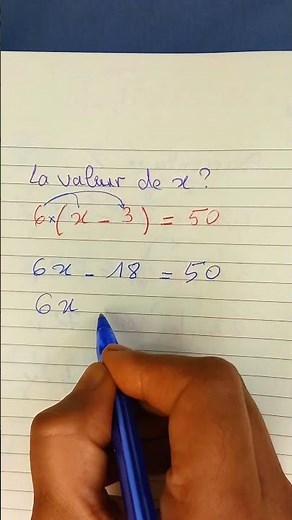 La valeur de x ?
6×(x - 3) = 50
6x - 18 = 50
6x